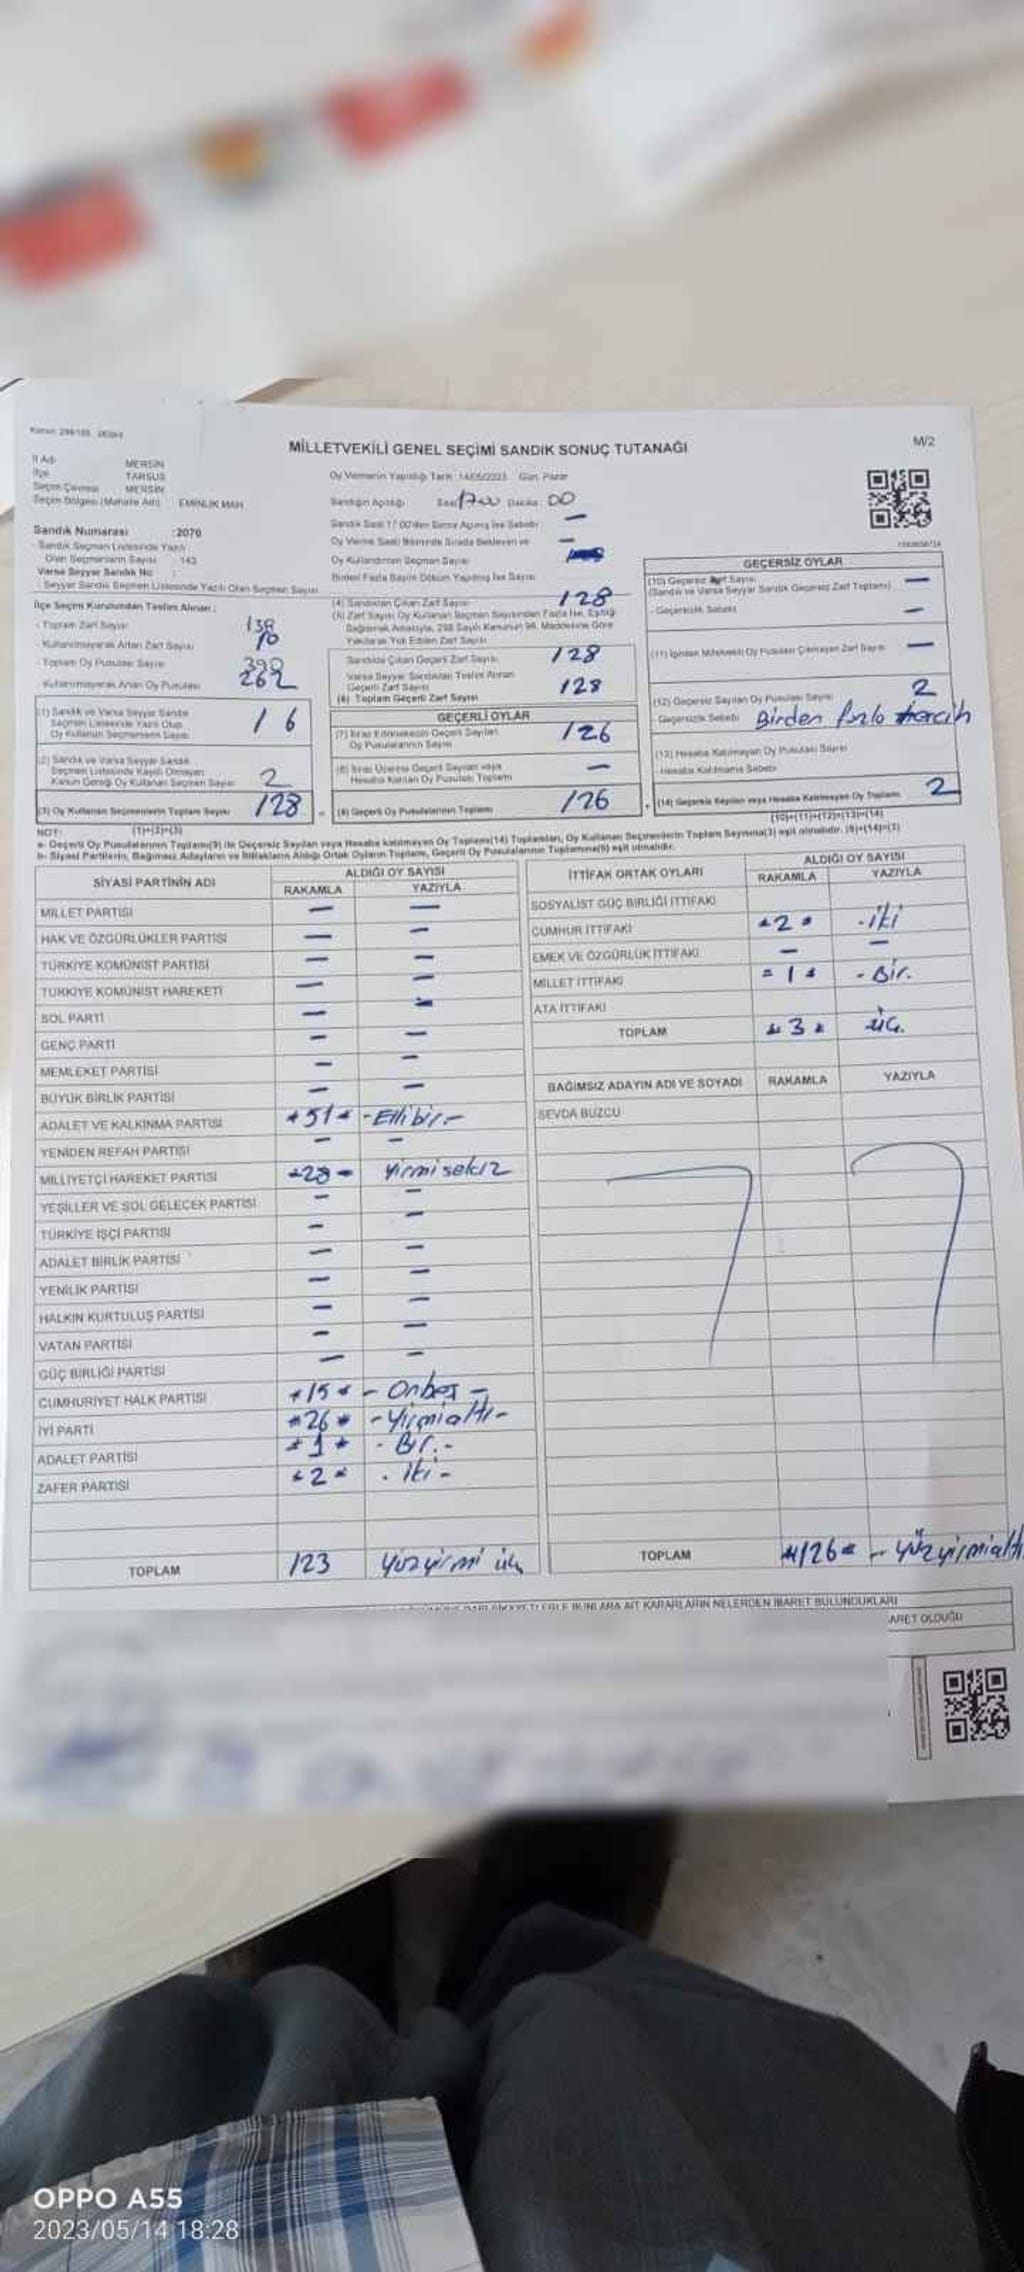 MİLLETVEKİLİ GENEL SEÇİMİ SANDIK SONUÇ TUTANAĞI
M/2
İl Adı MERSİN
İlçe TARSUS
Seçim Çevresi MERSİN
Seçim Bölgesi (Mahalle Adı) EMİNLİK MAH
Sandık Numarası :2070
Sandık Seçmen Listesinde Yazılı
Olan Seçmenlerin Sayısı : 143
Varsa Seyyar Sandık No :
Seyyar Sandık Seçmen Listesinde Yazılı Olan Seçmen Sayısı
Oy Vermenin Yapıldığı Tarih :14/05/2023 Gün: Pazar
Sandığın Açıldığı Saat 1700 Dakika: 00
Sandık Saat 17:00'den Sonra Açılmış İse Sebebi —
Oy Verme Saati Bitiminde Sırada Bekleyen ve —
Oy Kullandırılan Seçmen Sayısı
Birden Fazla Sayım Döküm Yapılmış İse Sayısı
İlçe Seçim Kurulundan Teslim Alınan :
- Toplam Zarf Sayısı 138
- Kullanılmayarak Artan Zarf Sayısı 10
- Toplam Oy Pusulası Sayısı
- Kullanılmayarak Artan Oy Pusulası 262
(1) Sandık ve Varsa Seyyar Sandık
Seçmen Listesinde Yazılı Olup
Oy Kullanan Seçmenlerin Sayısı 1 6
(2) Sandık ve Varsa Seyyar Sandık
Seçmen Listesinde Kayıtlı Olmayan
Kanun Gereği Oy Kullanan Seçmen Sayısı 2
(3) Oy Kullanan Seçmenlerin Toplam Sayısı 128
(1)+(2)=(3)
(4) Sandıktan Çıkan Zarf Sayısı 128
(5) Zarf Sayısı Oy Kullanan Seçmen Sayısından Fazla İse, Eşitliği
Sağlamak Amacıyla, 298 Sayılı Kanunun 98. Maddesine Göre
Yakılarak Yok Edilen Zarf Sayısı
Sandıkta Çıkan Geçerli Zarf Sayısı 128
Varsa Seyyar Sandıktan Teslim Alınan
Geçerli Zarf Sayısı
(6) Toplam Geçerli Zarf Sayısı 128
GEÇERLİ OYLAR
(7) İtiraz Edilmeksizin Geçerli Sayılan
Oy Pusulalarının Sayısı 126
(8) İtiraz Üzerine Geçerli Sayılan veya
Hesaba Katılan Oy Pusulası Toplamı —
(9) Geçerli Oy Pusulalarının Toplamı 126
GEÇERSİZ OYLAR
(10) Geçersiz Zarf Sayısı
(Sandık ve Varsa Seyyar Sandık Geçersiz Zarf Toplamı) —
- Geçersizlik Sebebi —
(11) İçinden Milletvekili Oy Pusulası Çıkmayan Zarf Sayısı —
(12) Geçersiz Sayılan Oy Pusulası Sayısı 2
- Geçersizlik Sebebi Birden fazla tercih
(13) Hesaba Katılmayan Oy Pusulası Sayısı
- Hesaba Katılmama Sebebi
(14) Geçersiz Sayılan veya Hesaba Katılmayan Oy Toplamı 2
(10)+(11)+(12)+(13)=(14)
NOT:
a- Geçerli Oy Pusulalarının Toplamı(9) ile Geçersiz Sayılan veya Hesaba katılmayan Oy Toplamı(14) Toplamları, Oy Kullanan Seçmenlerin Toplam Sayısına(3) eşit olmalıdır. (9)+(14)=(3)
b- Siyasi Partilerin, Bağımsız Adayların ve İttifakların Aldığı Ortak Oyların Toplamı, Geçerli Oy Pusulalarının Toplamına(9) eşit olmalıdır.
SİYASİ PARTİNİN ADI ALDIĞI OY SAYISI
RAKAMLA YAZIYLA
MİLLET PARTİSİ — —
HAK VE ÖZGÜRLÜKLER PARTİSİ — —
TÜRKİYE KOMÜNİST PARTİSİ — —
TÜRKİYE KOMÜNİST HAREKETİ — —
SOL PARTİ — —
GENÇ PARTİ — —
MEMLEKET PARTİSİ — —
BÜYÜK BİRLİK PARTİSİ — —
ADALET VE KALKINMA PARTİSİ 51 - Ellibir -
YENİDEN REFAH PARTİSİ — —
MİLLİYETÇİ HAREKET PARTİSİ 28 Yirmisekiz
YEŞİLLER VE SOL GELECEK PARTİSİ — —
TÜRKİYE İŞÇİ PARTİSİ — —
ADALET BİRLİK PARTİSİ — —
YENİLİK PARTİSİ — —
HALKIN KURTULUŞ PARTİSİ — —
VATAN PARTİSİ — —
GÜÇ BİRLİĞİ PARTİSİ — —
CUMHURİYET HALK PARTİSİ 15 - Onbeş -
İYİ PARTİ 26 - Yirmialtı -
ADALET PARTİSİ 1 - Bir. -
ZAFER PARTİSİ 2 - İki -
TOPLAM 123 Yüzyirmi üç
İTTİFAK ORTAK OYLARI ALDIĞI OY SAYISI
RAKAMLA YAZIYLA
SOSYALİST GÜÇ BİRLİĞİ İTTİFAKI
CUMHUR İTTİFAKI 2 - iki
EMEK VE ÖZGÜRLÜK İTTİFAKI — —
MİLLET İTTİFAKI 1 - Bir.
ATA İTTİFAKI
TOPLAM 3 üç.
BAĞIMSIZ ADAYIN ADI VE SOYADI RAKAMLA YAZIYLA
SEVDA BUZCU
TOPLAM 126 - Yüzyirmialtı
ARET OLDUĞU
OPPO A55
2023/05/14 18:28